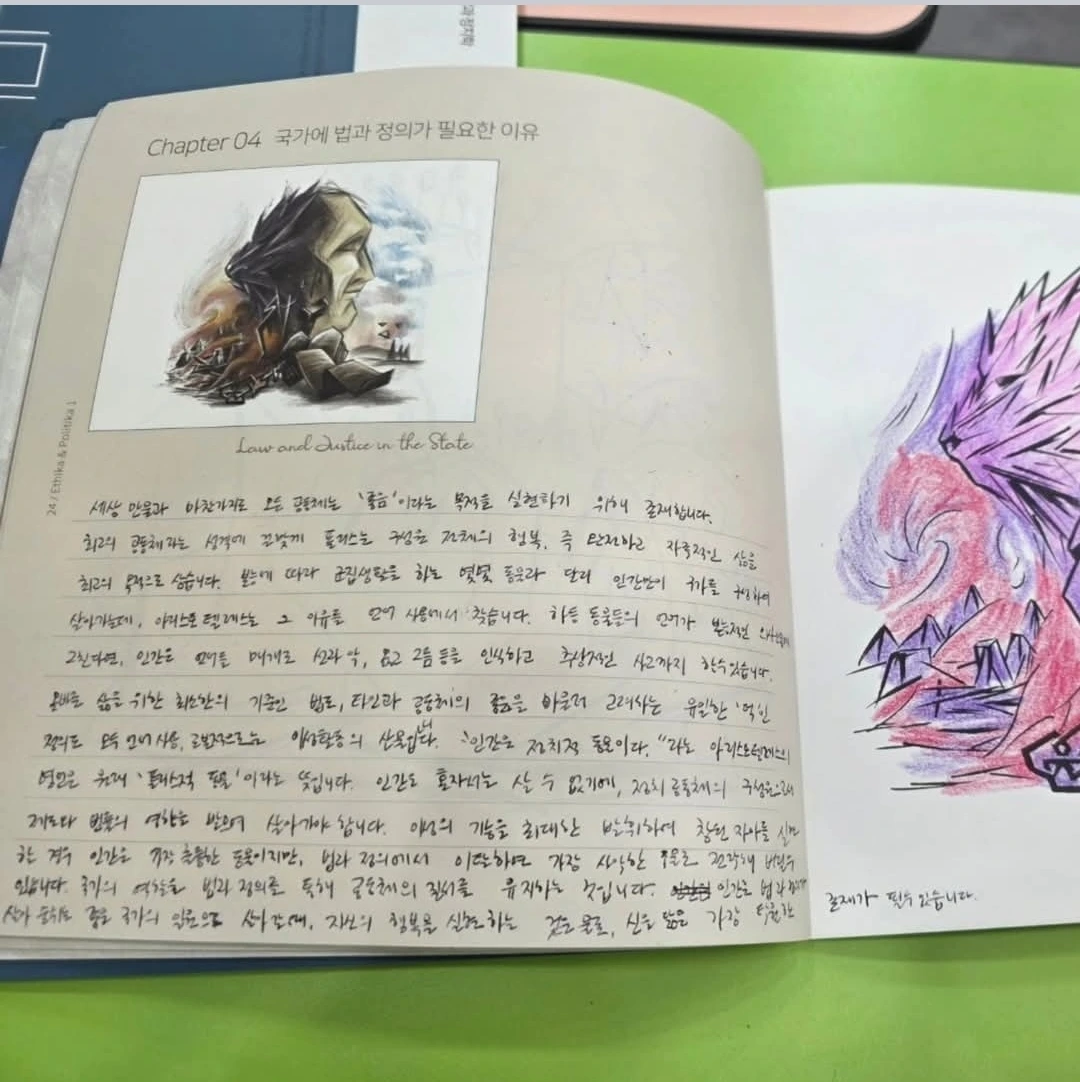 과 정치학
Chapter 04 국가에 법과 정의가 필요한 이유
Law and Justice in the State
24 / Ethika & Politika 1
세상 만물과 마찬가지로 모든 공동체는 '좋음'이라는 목적을 실현하기 위해 존재합니다.
최고의 공동체라는 성격에 걸맞게 폴리스는 구성원 전체의 행복, 즉 완전하고 자족적인 삶을
최고의 목적으로 삼습니다. 본능에 따라 군집생활을 하는 몇몇 동물과 달리 인간만이 국가를 구성하여
살아가는데, 아리스토텔레스는 그 이유를 언어 사용에서 찾습니다. 하등 동물들의 언어가 본능적인
그친다면, 인간은 언어를 매개로 선과 악, 옳고 그름 등을 인식하고 추상적인 사고까지 할 수 있습니다.
올바른 삶을 위한 최소한의 기준인 법도, 타인과 공동체의 좋음을 아울러 고려하는 유일한 '덕'인
정의도 모두 언어 사용, 근본적으로는 이성활동의 산물입니다. "인간은 정치적 동물이다."라는 아리스토텔레스의
명언은 원래 '폴리스적 동물'이라는 뜻입니다. 인간은 혼자서는 살 수 없기에, 정치 공동체의 구성원으로서
제도와 법률의 영향을 받으며 살아가야 합니다. 이성의 기능을 최대한 발휘하여 참된 자아를 실현
한 경우 인간은 가장 훌륭한 동물이지만, 법과 정의에서 이탈하면 가장 사악한 동물로 전락해 버릴 수
있습니다. 국가의 역할은 법과 정의를 통해 공동체의 질서를 유지하는 것입니다. 인간은 법과
살아 숨쉬는 좋은 국가의 일원으로 살아갈 때, 자신의 행복을 실현하는 것은 물론, 신을 닮은 가장 탁월한
존재가 될 수 있습니다.